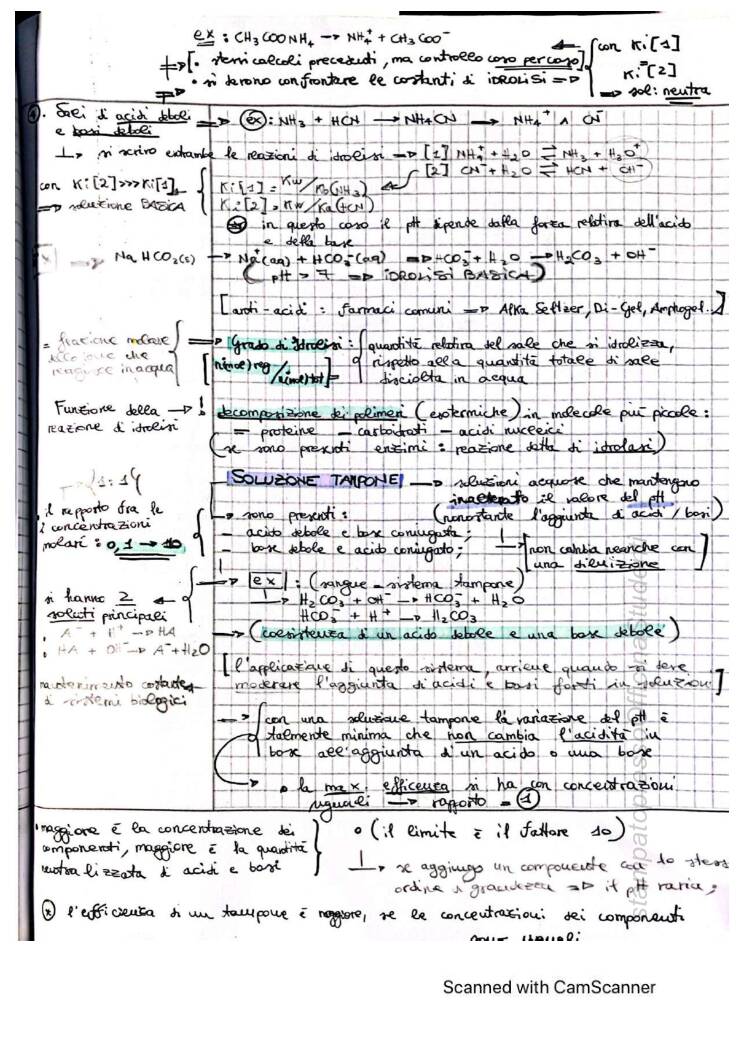 ex : CH3COONH4 → NH4+ + CH3COO-
[• stessi calcoli precedenti, ma controllo caso per caso]
• si devono confrontare le costanti di IDROLISI ⇒
con Ki[1]
= Ki[2]
⇒ sol: neutra
Sali di acidi deboli
e basi deboli
⇒ ex: NH3 + HCN → NH4CN → NH4+ ∧ CN-
↳ si scrivo entrambe le reazioni di idrolisi → [1] NH4+ + H2O ⇌ NH3 + H3O+
[2] CN- + H2O ⇌ HCN + OH-
con Ki[2]>>>Ki[1]
⇒ soluzione BASICA
Ki[1] = Kw/Kb(NH3)
Ki[2] = Kw/Ka(HCN)
in questo caso il pH dipende dalla forza relativa dell'acido
e della base
NaHCO3(s) → Na+(aq) + HCO3-(aq) ⇒ HCO3- + H2O → H2CO3 + OH-
(pH > 7 ⇒ IDROLISI BASICA)
[anti-acidi : farmaci comuni ⇒ Alka Seltzer, Di-Gel, Amphogel..]
= frazione molare
dello ione che
reagisce in acqua
⇒ Grado di Idrolisi :
n(mol)reg / n(mol)tot
quantità relativa del sale che si idrolizza,
rispetto alla quantità totale di sale
disciolta in acqua
Funzione della
reazione di idrolisi
→ ! decomposizione dei polimeri (esotermiche) in molecole più piccole:
= proteine - carboidrati - acidi nucleici
(se sono presenti enzimi : reazione detta di idrolasi)
SOLUZIONE TAMPONE → soluzioni acquose che mantengono
inalterato il valore del pH
(nonostante l'aggiunta di acidi / basi)
il rapporto fra le
concentrazioni
molari : 0,1 → 10
→ sono presenti :
- acido debole e base coniugata;
- base debole e acido coniugato;
→ [non cambia neanche con
una diluizione]
→ ex : (sangue - sistema tampone)
↳ H2CO3 + OH- → HCO3- + H2O
HCO3- + H+ → H2CO3
si hanno 2
soluti principali
. A- + H+ → HA
. HA + OH- → A- + H2O
→ (coesistenza di un acido debole e una base debole)
[l'applicazione di questo sistema, avviene quando si deve
moderare l'aggiunta di acidi e basi forti in soluzioni]
mantenimento costante
di sistemi biologici
→ con una soluzione tampone la variazione del pH è
talmente minima che non cambia l'acidità in
base all'aggiunta d'un acido o una base
→ • la max. efficenza si ha con concentrazioni
uguali → rapporto = 1
maggiore è la concentrazione dei
componenti, maggiore è la quantità
neutralizzata di acidi e basi
• (il limite è il fattore 10)
↳ se aggiungo un componente con lo stess
ordine di grandezza ⇒ il pH varia;
l'efficienza di un tampone è maggiore, se le concentrazioni dei componenti
sono uguali
Scanned with CamScanner